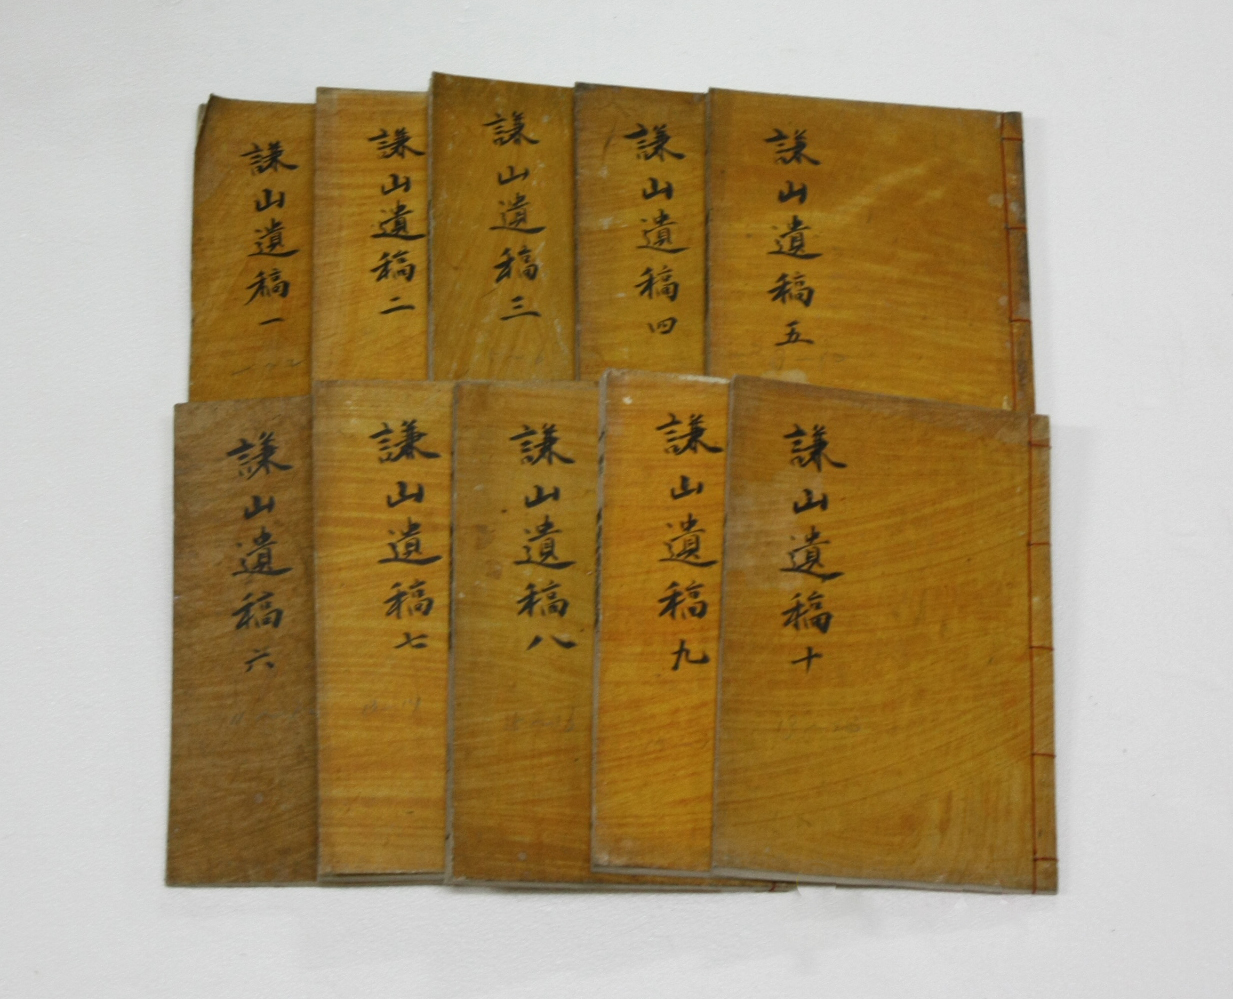 謙山遺稿一
謙山遺稿二
謙山遺稿三
謙山遺稿四
謙山遺稿五
謙山遺稿六
謙山遺稿七
謙山遺稿八
謙山遺稿九
謙山遺稿十